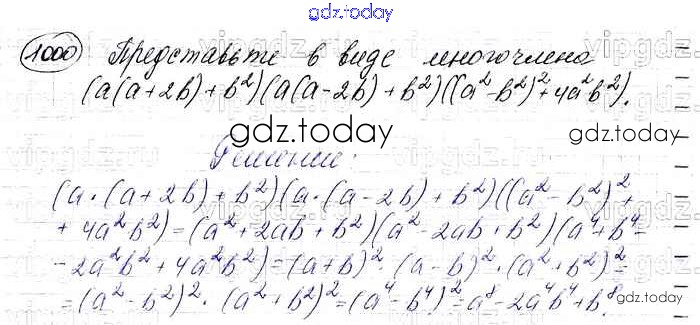 gdz.today
1000 Представьте в виде многочлена
(a(a+2b)+b²)(a(a-2b)+b²)((a²-b²)²+4a²b²).
gdz.today
gdz.today
Решение:
(a·(a+2b)+b²)(a·(a-2b)+b²)((a²-b²)²+
+4a²b²)=(a²+2ab+b²)(a²-2ab+b²)(a⁴+b⁴-
-2a²b²+4a²b²)=(a+b)²·(a-b)²·(a²+b²)²=
=(a²-b²)²·(a²+b²)²=(a⁴-b⁴)²=a⁸-2a⁴b⁴+b⁸.
gdz.today